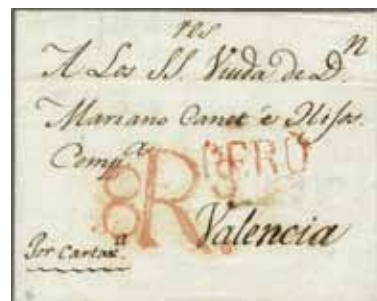 A Los SS.res Viuda de D.n
Mariano Canet è Hijos.
Comp.a
PERÚ
R.
Valencia
Por Cartax.a